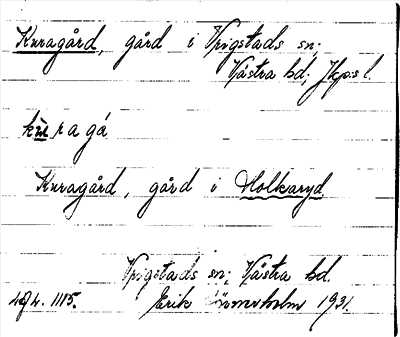 Kuragård, gård i Vrigstads sn;
Västra hd; Jkps l.
kùragá
Kuragård, gård i Holkaryd
Vrigstads sn; Västra hd.
Erik 1931.